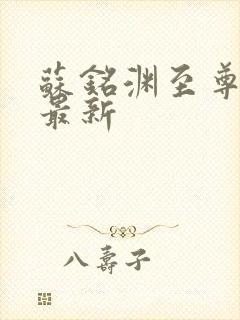 蘇銘淵至尊
最新
八壽子